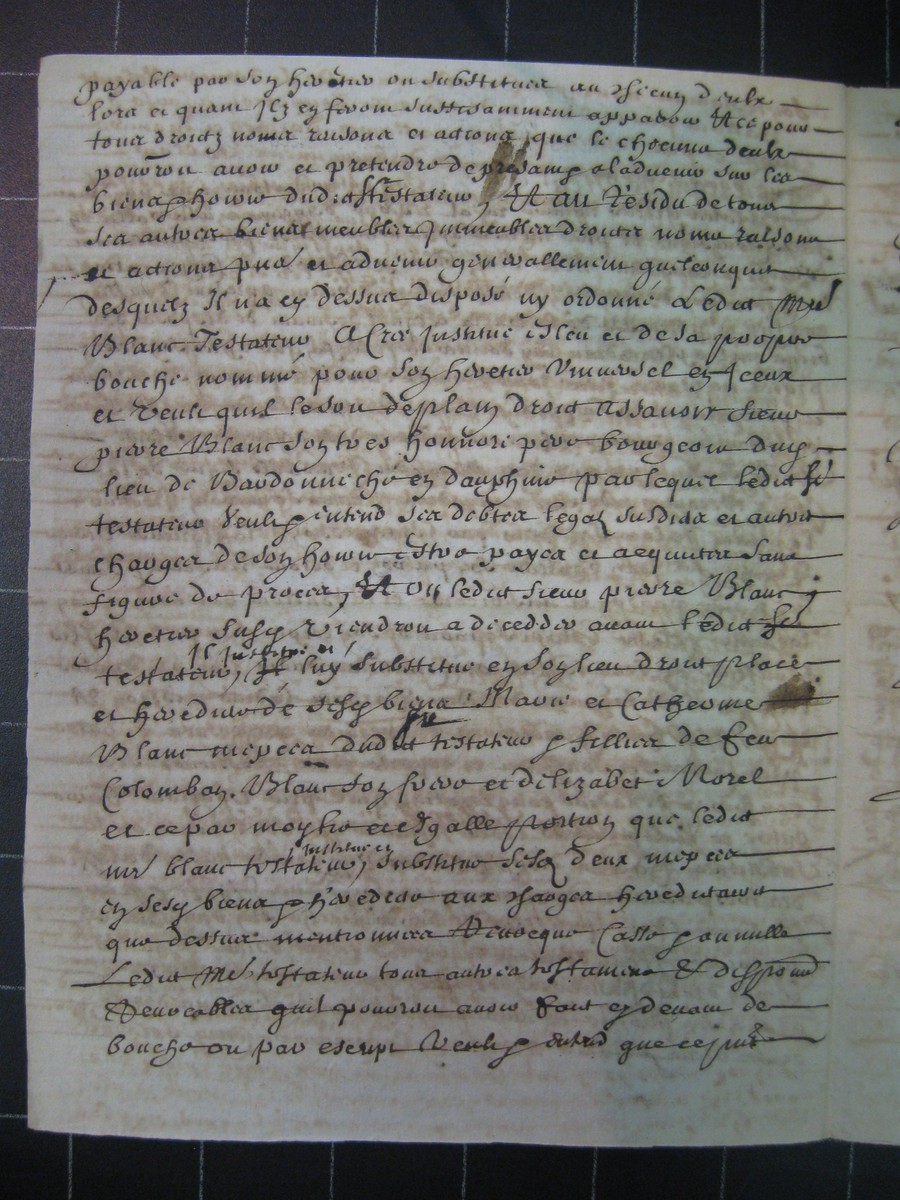 payable par son heretier ou substituer au chacun d'eulx
lors et quant ilz en seront suffisamment apparoir Et ce pour
tous droictz noms raisons et actions que le chacung deulx
pourron avoir et pretendre de presant et a ladvenir sur les
biens et hoirie dudict sr testateur, Et au Residu de tous
ses autres biens meubles immeubles droictz noms raisons
et actions pnt et advenir generallement quelconques
desquelz Il na cy dessus disposé ny ordonné Ledict Mre
Blanc Testateur A Cree institué esleu et de sa propre
bouche nommé pour son heretier Universel en Iceux
et veult quil le soit de plain droict assavoir sieur
pierre Blanc son tres honnoré pere bourgeois dud
lieu de Bardonneche en dauphine par lequel ledict sr
testateur veult et entend ses debtes legaz susdits et autres
charges de son hoirie estre payes et acquites sans
figure de proces, Et ou ledict sieur pierre Blanc
heretier susd viendroit a decedder avant ledict sr
testateur, Il institue et luy substitue en son lieu droict place
et heredite de sesd biens Marie et Catherine
Blanc niepces dudict sr testateur et filhes de feu
Colomban Blanc son frere et delizabet Morel
et ce par moytie et esgalle portion que ledict
mre blanc testateur, institue et substitue sesd deux niepces
en sesd biens et heredite aux charges hereditaires
que dessus mentionnees Revocque Casse et annulle
Ledict Mre testateur tous autres testamens & dispons
Revocables quil pourroit avoir faict cy devant de
bouche ou par escript Veult et entend que ce pnt